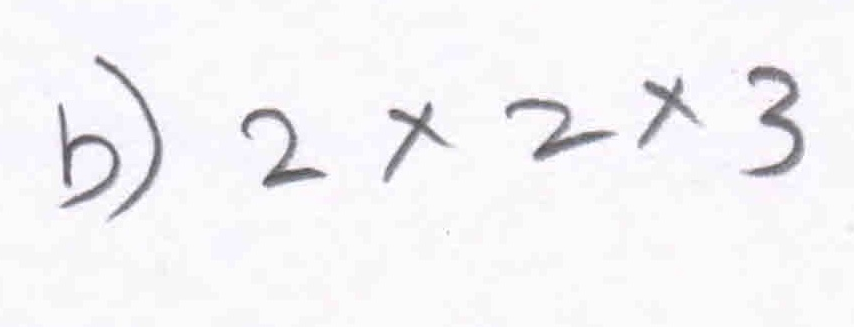 b) 2 × 2 × 3